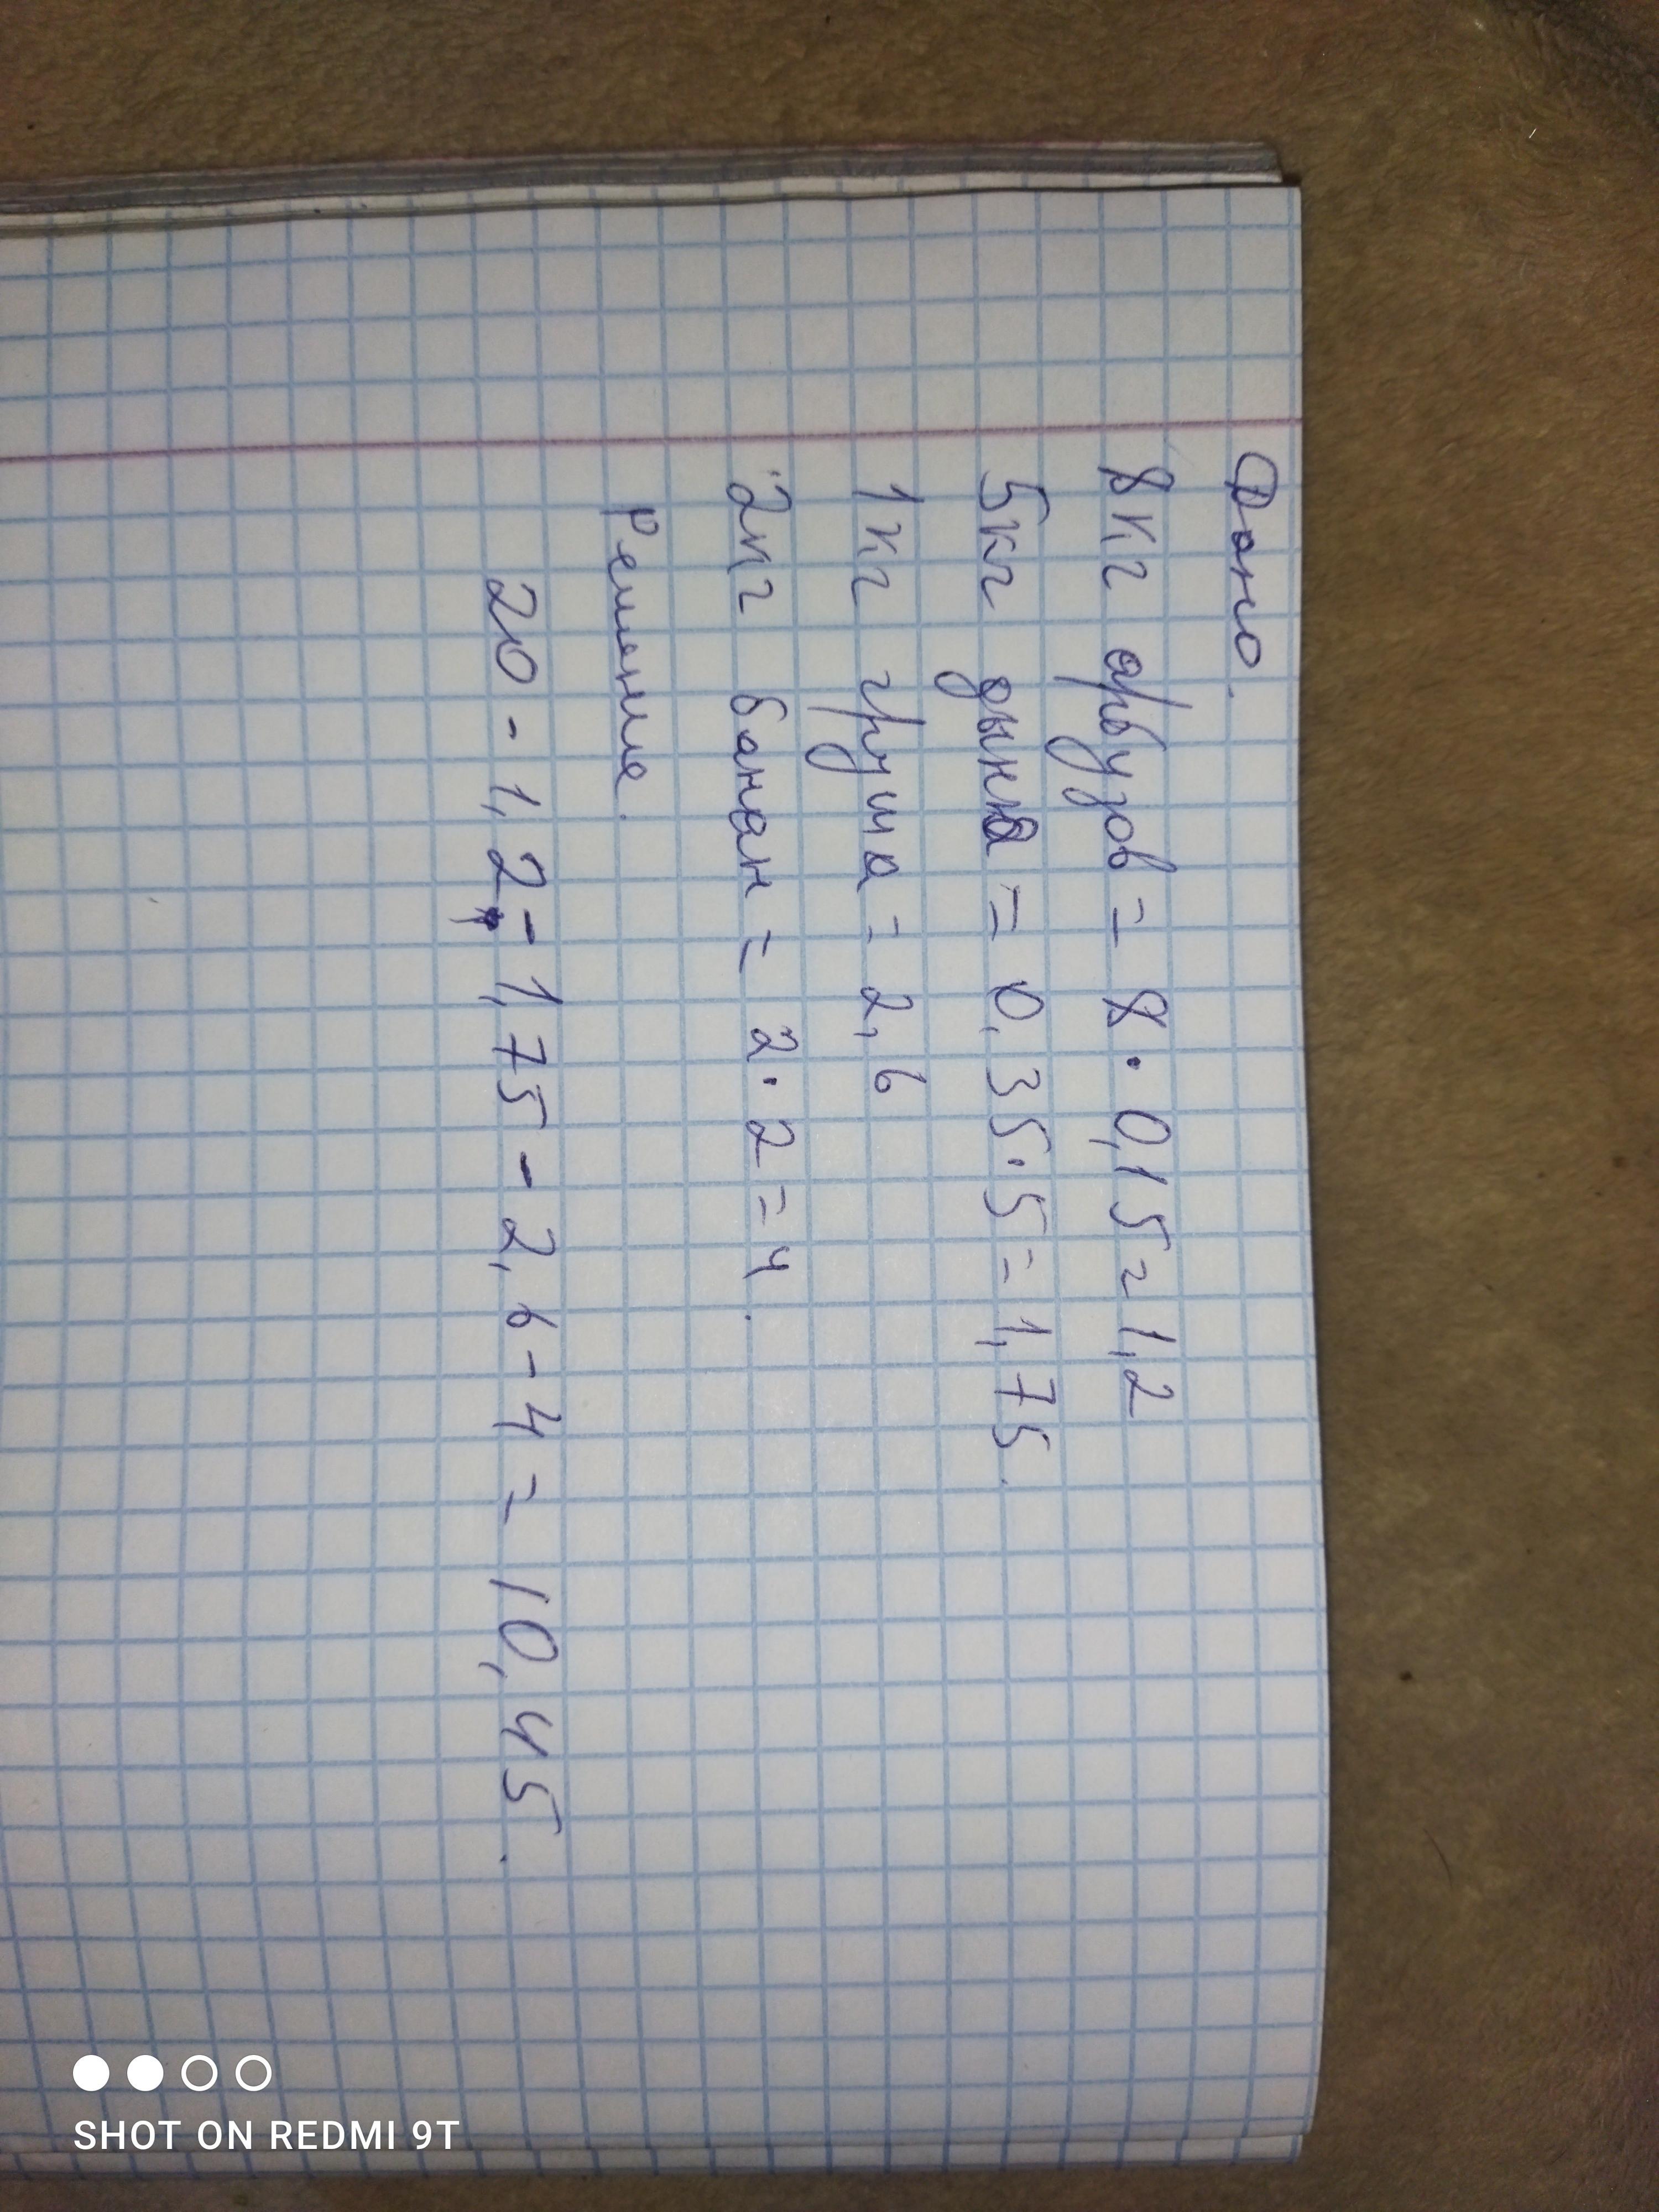 Дано.
8 кг арбузов = 8 · 0,15 = 1,2
5кг дыння = 0,35 · 5 = 1,75.
1 кг груша = 2,6
2кг банан = 2 · 2 = 4.
Решение.
20 - 1,2 - 1,75 - 2,6 - 4 = 10,45.
SHOT ON REDMI 9T